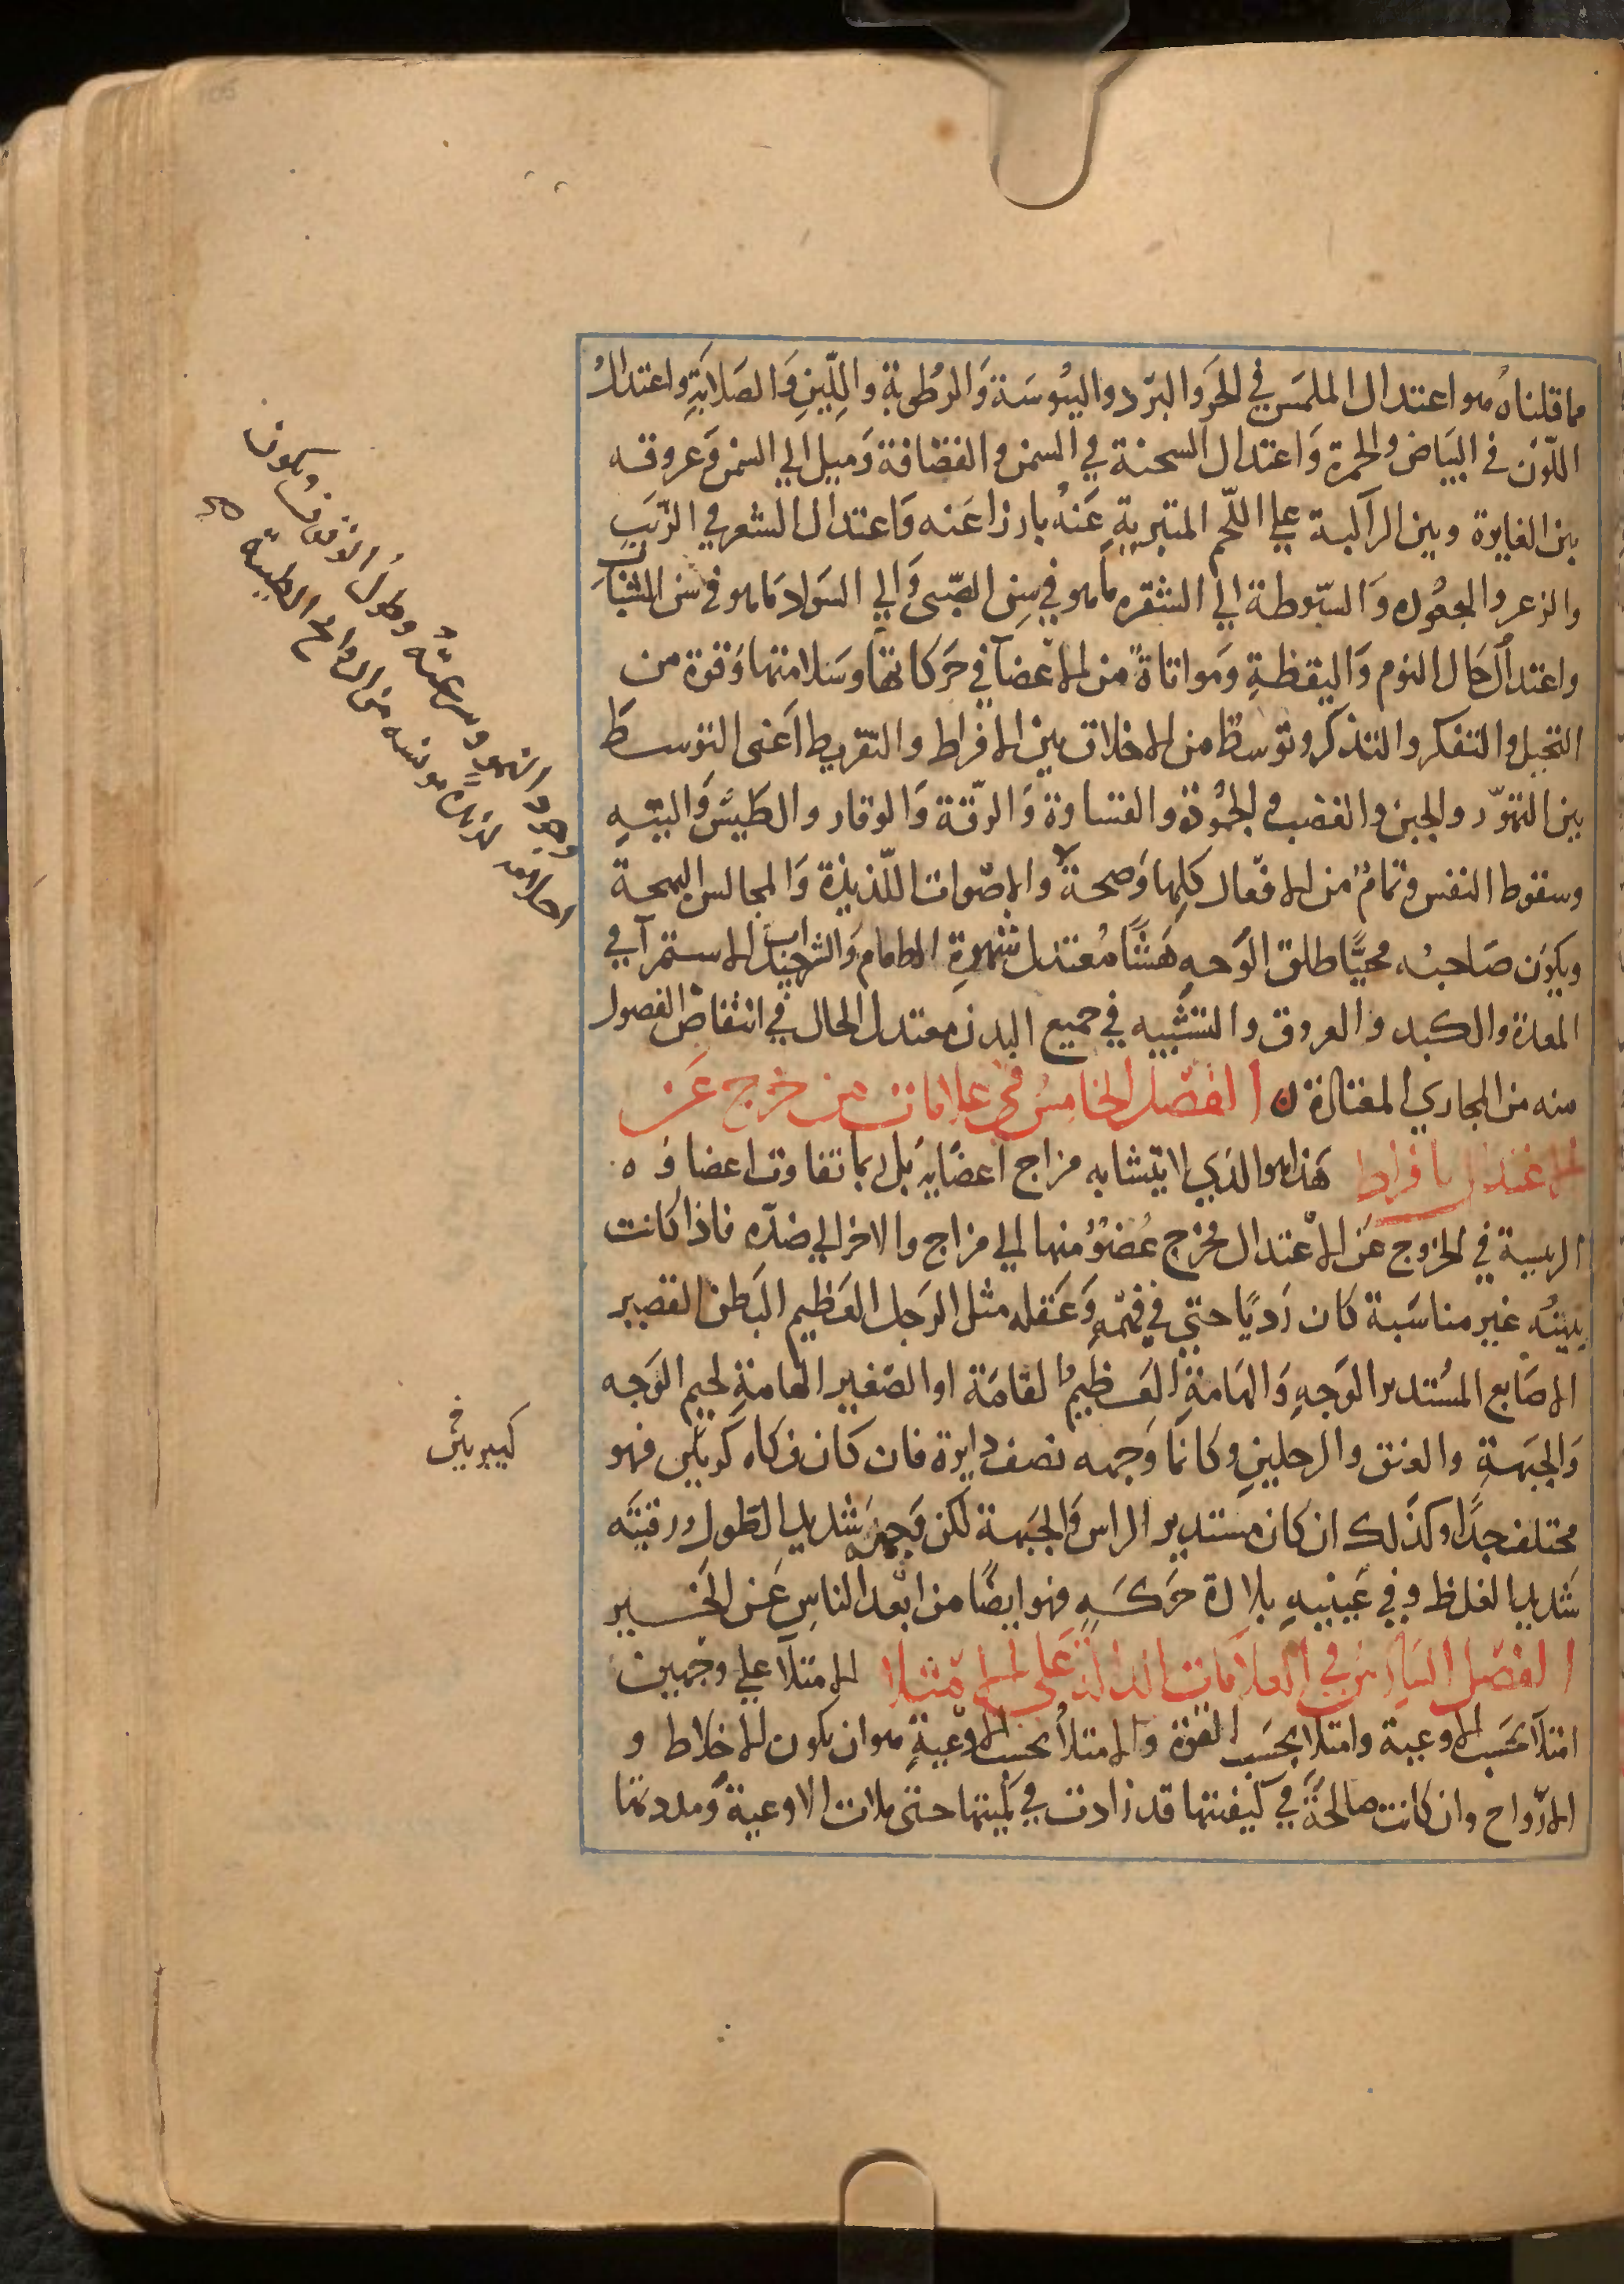 مما قلناه هو اعتدال الملمس في الحر والبرد واليبوسة والرطوبة واللين والصلابة واعتدال
اللون في البياض والحمرة واعتدال السحنة في السمن والقضافة وميل الي السمن وعروقه
بين الغايرة وبين الراكبة علي اللحم المتبرية عنه بارزا عنه واعتدال الشعر في الزبب
والزعر والجعوده والسبوطة الي الشقره ما هو في سن الصبى والي السواد ما هو في سن الشباب
واعتدال حال النوم واليقظة ومواتاة من الاعضآ في حركاتها وسلامتها وقوة من
التخيل والتفكر والتذكر وتوسط من الاخلاق بين الافراط والتفريط اعنى التوسط
بين التهور والجبن والغضب والجمودة والقساوة والرقة والوقار والطيش والتيه
وسقوط النفس وتمام من الافعال كلها وصحة والاصوات اللذيذة والمجالس البهجة
ويكون صاحبه محبيا طلق الوجه هشا معتدل شهوة الطعام والشراب جيد الاستمرآ في
المعدة والكبد والعروق والتشبيه في جميع البدن معتدل الحال في انتقاض الفصول
منه من المجاري المعتادة ن الفصل الخامس في علامات من خرج عن
الاعتدال بافراط هذا هو الذي لا يتشابه مزاج اعضايه بل ربما تفاوت اعضاؤه
الريسية في الخروج عن الاعتدال فخرج عضو منها الي مزاج والاخر الي ضده فاذا كانت
بنيته غير مناسبة كان رديا حتى في فهمه وعقله مثل الرجل العظيم البطن القصير
الاصابع المستدير الوجه والهامة العظيم القامة او الصغير الهامة لحيم الوجه
والجبهة والعنق والرجلين وكانما وجهه نصف دايرة فان كان فكاه كبيرين فهو
مختلف جدا وكذلك ان كان مستدير الراس والجبهة لكن وجهه شديد الطول ورقبته
شديد الغلظ وفي عينيه بلادة حركه فهو ايضا من ابعد الناس عن الخير
الفصل السادس في العلامات الدالة على الامتلا الامتلآ علي وجهين
امتلآ بحسب الاوعية وامتلا بحسب القوة والامتلا بحسب الاوعية هو ان يكون الاخلاط و
الارواح وان كانت صالحة في كيفيتها قد زادت في كميتها حتى ملات الاوعية ومددتها
وجوده النمو وسرعته وطول الوقوف ويكون
احلامه لذيذة مونسه من الروايح الطيبة
كبيرين